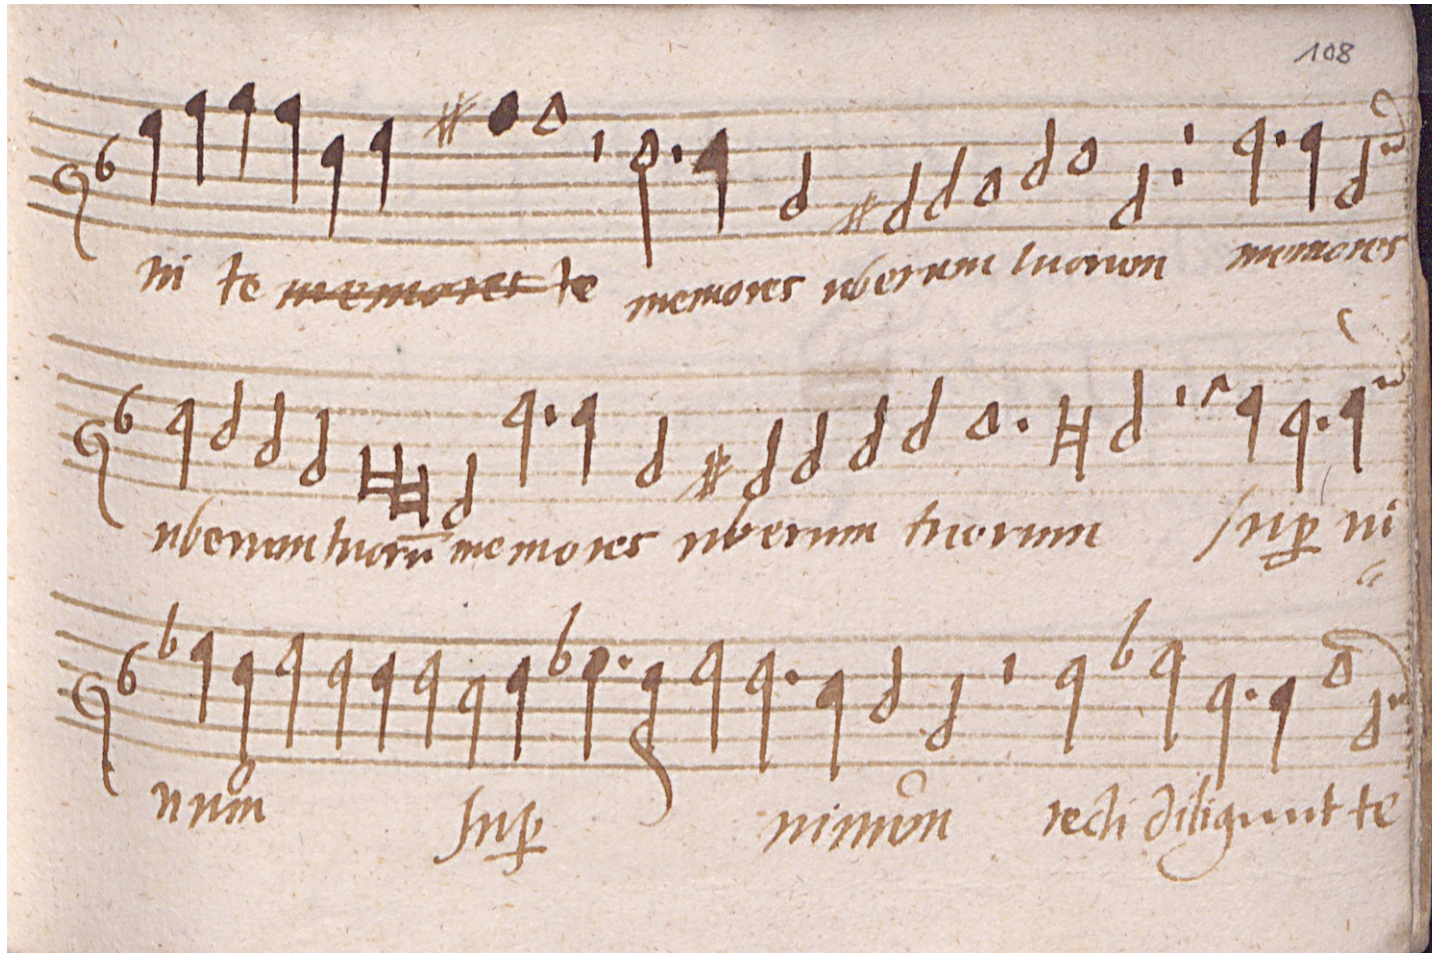 108
ni te memores te memores uberum tuorum memores
uberum tuorū memores uberum tuorum sup ni
num sup ninum recti diligunt te